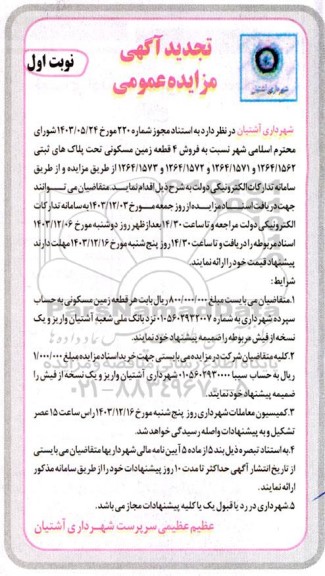 تجدید آگهی
مزایده عمومی
نوبت اول
شهرداری آشتیان
شهرداری آشتیان در نظر دارد به استناد مجوز شماره ۲۲۰ مورخ ۱۴۰۳/۰۵/۲۴ شورای
محترم اسلامی شهر نسبت به فروش ۴ قطعه زمین مسکونی تحت پلاک های ثبتی
۱۲۶۴/۱۵۶۲ و ۱۲۶۴/۱۵۷۱ و ۱۲۶۴/۱۵۷۲ و ۱۲۶۴/۱۵۷۳ از طریق مزایده و از طریق
سامانه تدارکات الکترونیکی دولت به شرح ذیل اقدام نمایـد. متقاضیان می تـوانند
جهت دریافت اسنـاد مزایده از روز جمعه مـورخ ۱۴۰۳/۱۲/۰۳ به سامانه تدارکات
الکترونیکی دولت مراجعه و تا ساعت ۱۴/۳۰ بعدازظهر روز دوشنبه مورخ ۱۴۰۳/۱۲/۰۶
اسناد مربوطه را دریافت و تا ساعت ۱۴/۳۰ روز پنج شنبه مورخ ۱۴۰۳/۱۲/۱۶ مهلت دارند
پیشنهاد قیمت خود را ارائه نمایند.
شرایط:
۱.متقاضیان می بایست مبلغ ۸۰۰/۰۰۰/۰۰۰ ریال بابت هر قطعه زمین مسکونی به حساب
سپرده شهرداری به شماره ۰۱۰۵۶۰۲۹۳۲۰۰۷ نزد بانک ملی شعبه آشتیان واریز و یک
نسخه از فیش مربوطه را ضمیمه پیشنهاد خود نمایند.
۲.کلیه متقاضیان شرکت در مزایده می بایستی جهت خرید اسناد مزایده مبلغ ۱/۰۰۰/۰۰۰
ریال به حساب سیبا ۰۱۰۵۶۰۲۹۳۰۰۰۰ شهرداری آشتیان واریز و یک نسخه از فیش را
ضمیمه پیشنهاد خود نمایند.
۳.کمیسیون معاملات شهرداری روز پنج شنبه مورخ ۱۴۰۳/۱۲/۱۶ راس ساعت ۱۵ عصر
تشکیل و به پیشنهادات واصله رسیدگی خواهد شد.
۴.به استناد تبصره ذیل بند ۵ از ماده ۵ آیین نامه مالی شهرداریها متقاضیان می بایستی
از تاریخ انتشار آگهی حداکثر تا مدت ۱۰ روز پیشنهادات خود را از طریق سامانه مذکور
ارائه نمایند.
۵.شهرداری در رد یا قبول یک یا کلیه پیشنهادات مجاز می باشد.
عظیم عظیمی سرپرست شهرداری آشتیان